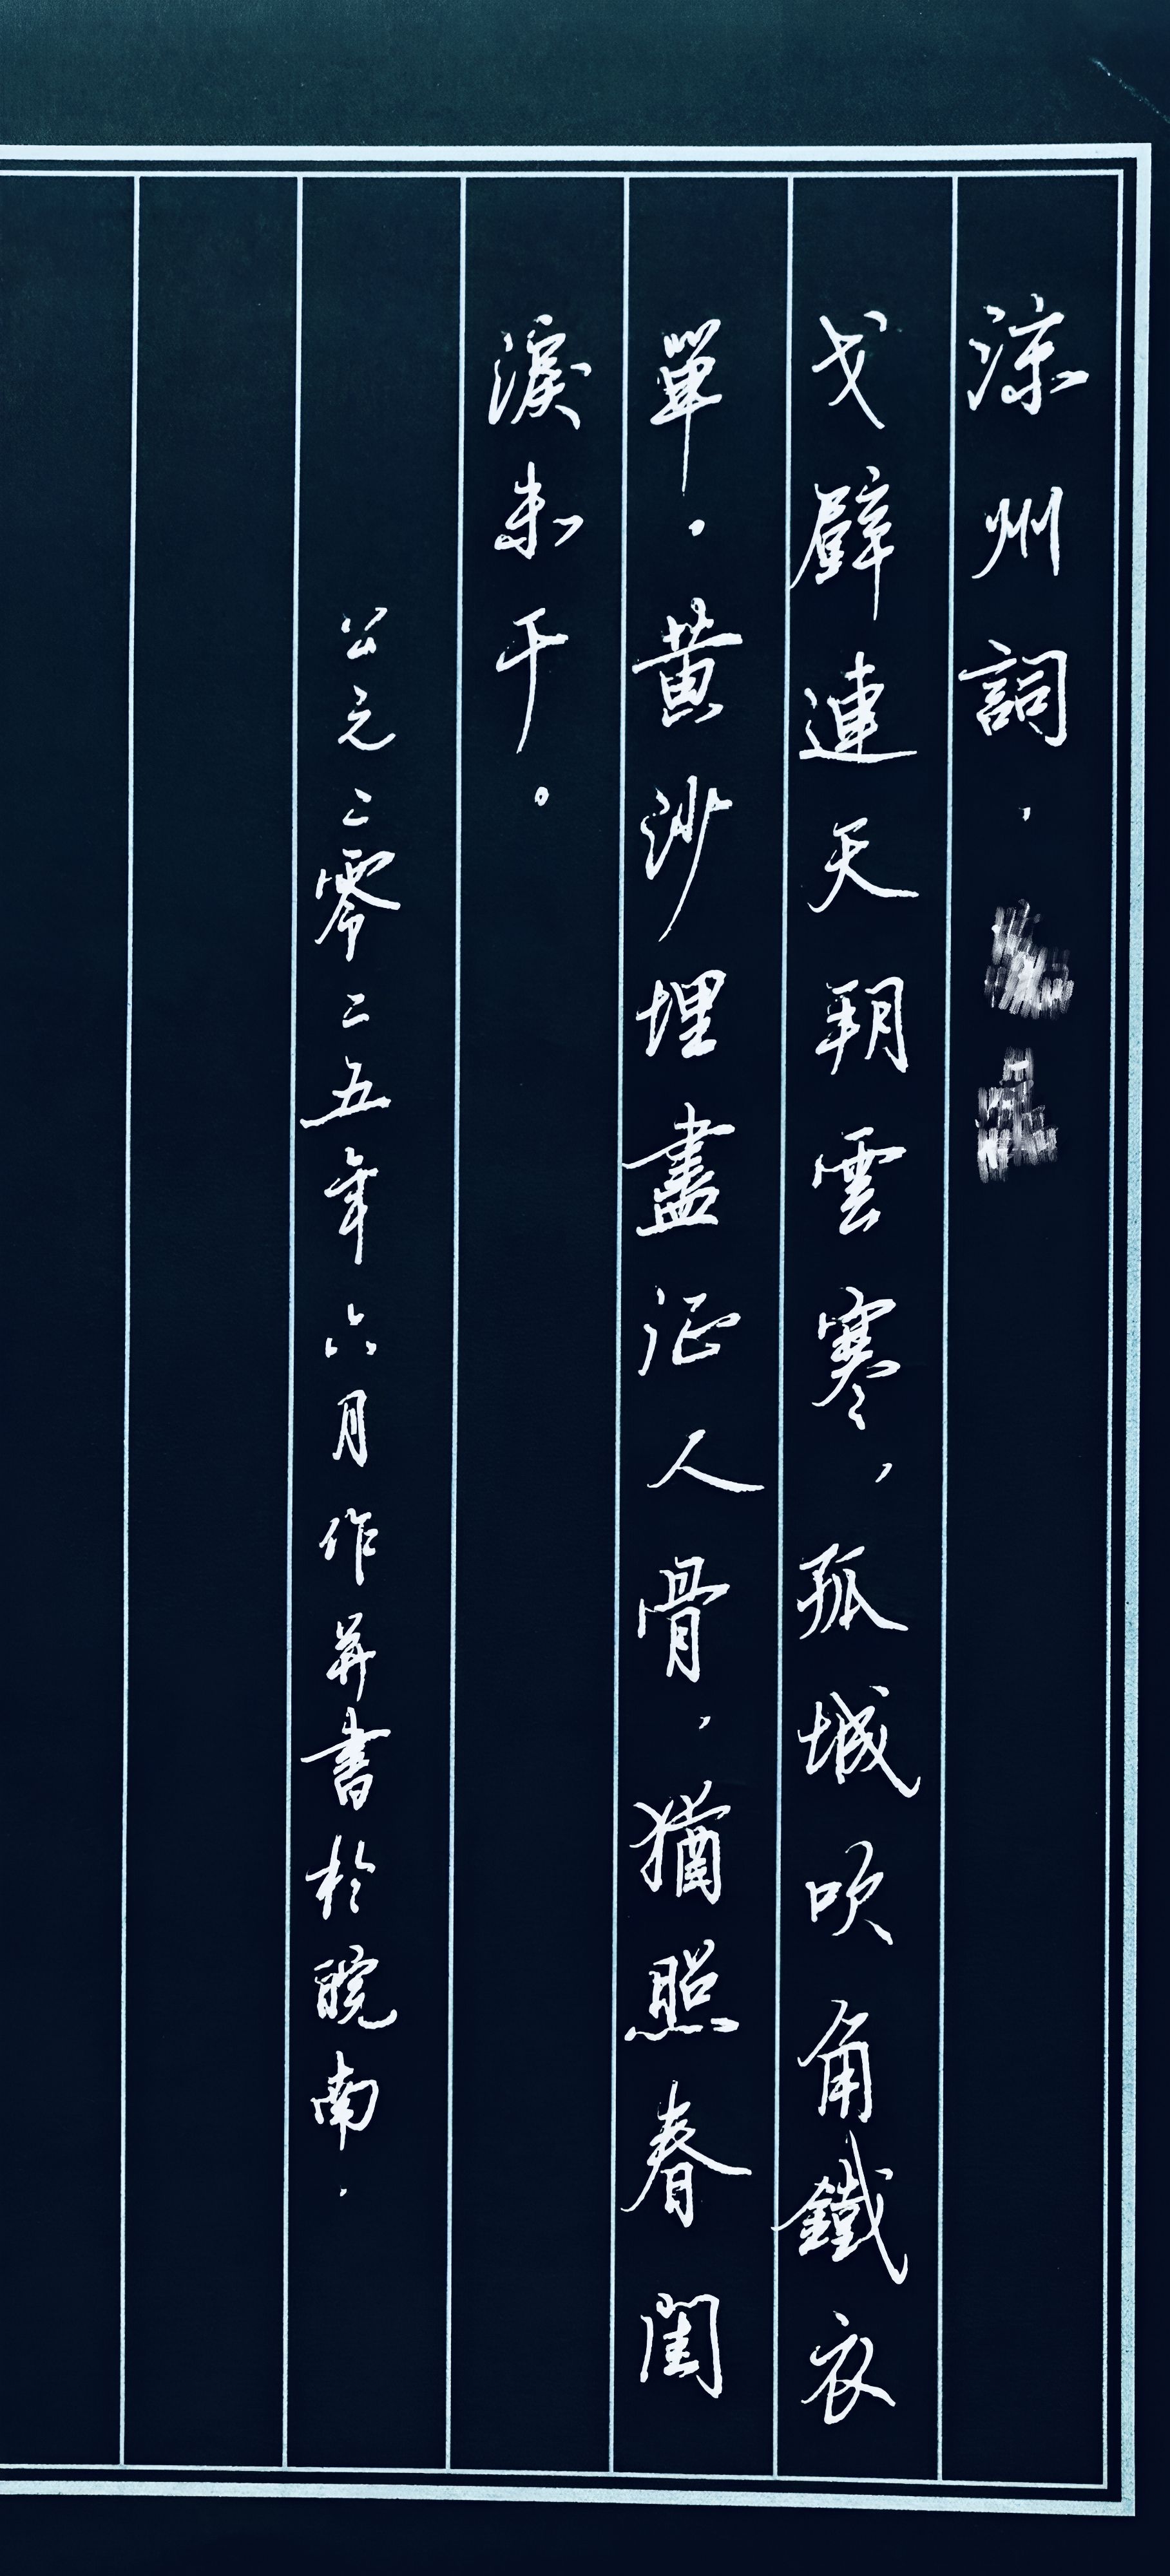 涼州詞．
戈壁連天朔雲寒，孤城吹角鐵衣
單．黄沙埋盡征人骨，猶照春闺
淚未干。
公元二零二五年六月作并書於皖南．